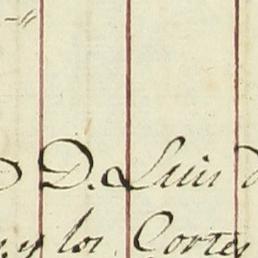 D. Luis
y los Cortes